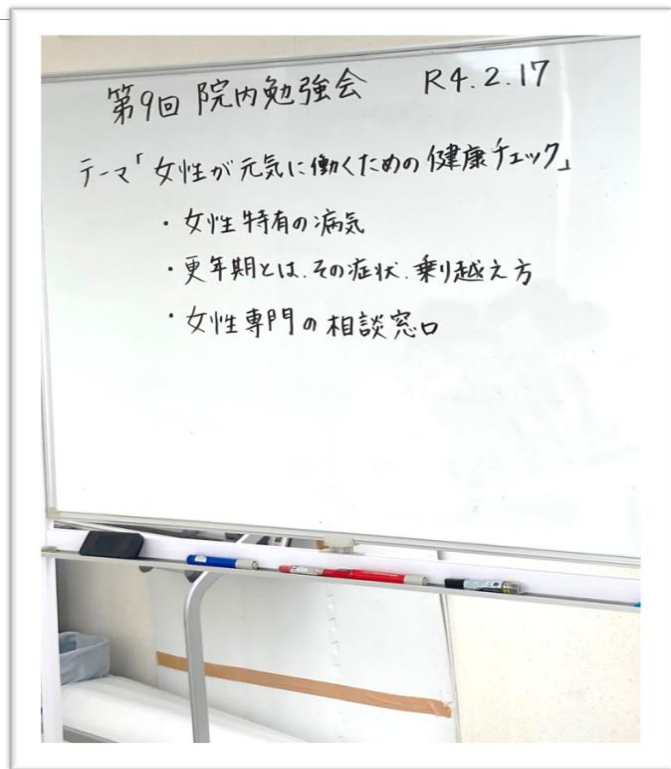 第9回 院内勉強会 R4.2.17
テーマ「女性が元気に働くための健康チェック」
・女性特有の病気
・更年期とは.その症状.乗り越え方
・女性専門の相談窓口